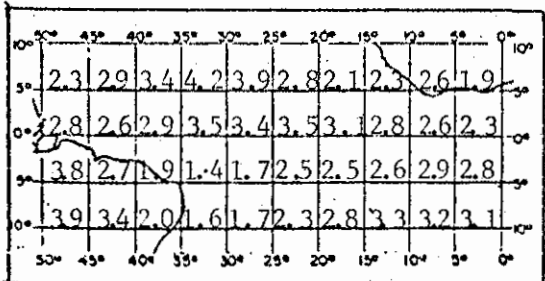 50° 45° 40° 35° 30° 25° 20° 15° 10° 5° 0°
10° 10°
2.3 2.9 3.4 4.2 3.9 2.8 2.1 2.3 2.6 1.9
5° 5°
2.8 2.6 2.9 3.5 3.4 3.5 3.1 2.8 2.6 2.3
0° 0°
3.8 2.7 1.9 1.4 1.7 2.5 2.5 2.6 2.9 2.8
5° 5°
3.9 3.4 2.0 1.6 1.7 2.3 2.8 3.3 3.2 3.1
10° 10°
50° 45° 40° 35° 30° 25° 20° 15° 10° 5° 0°